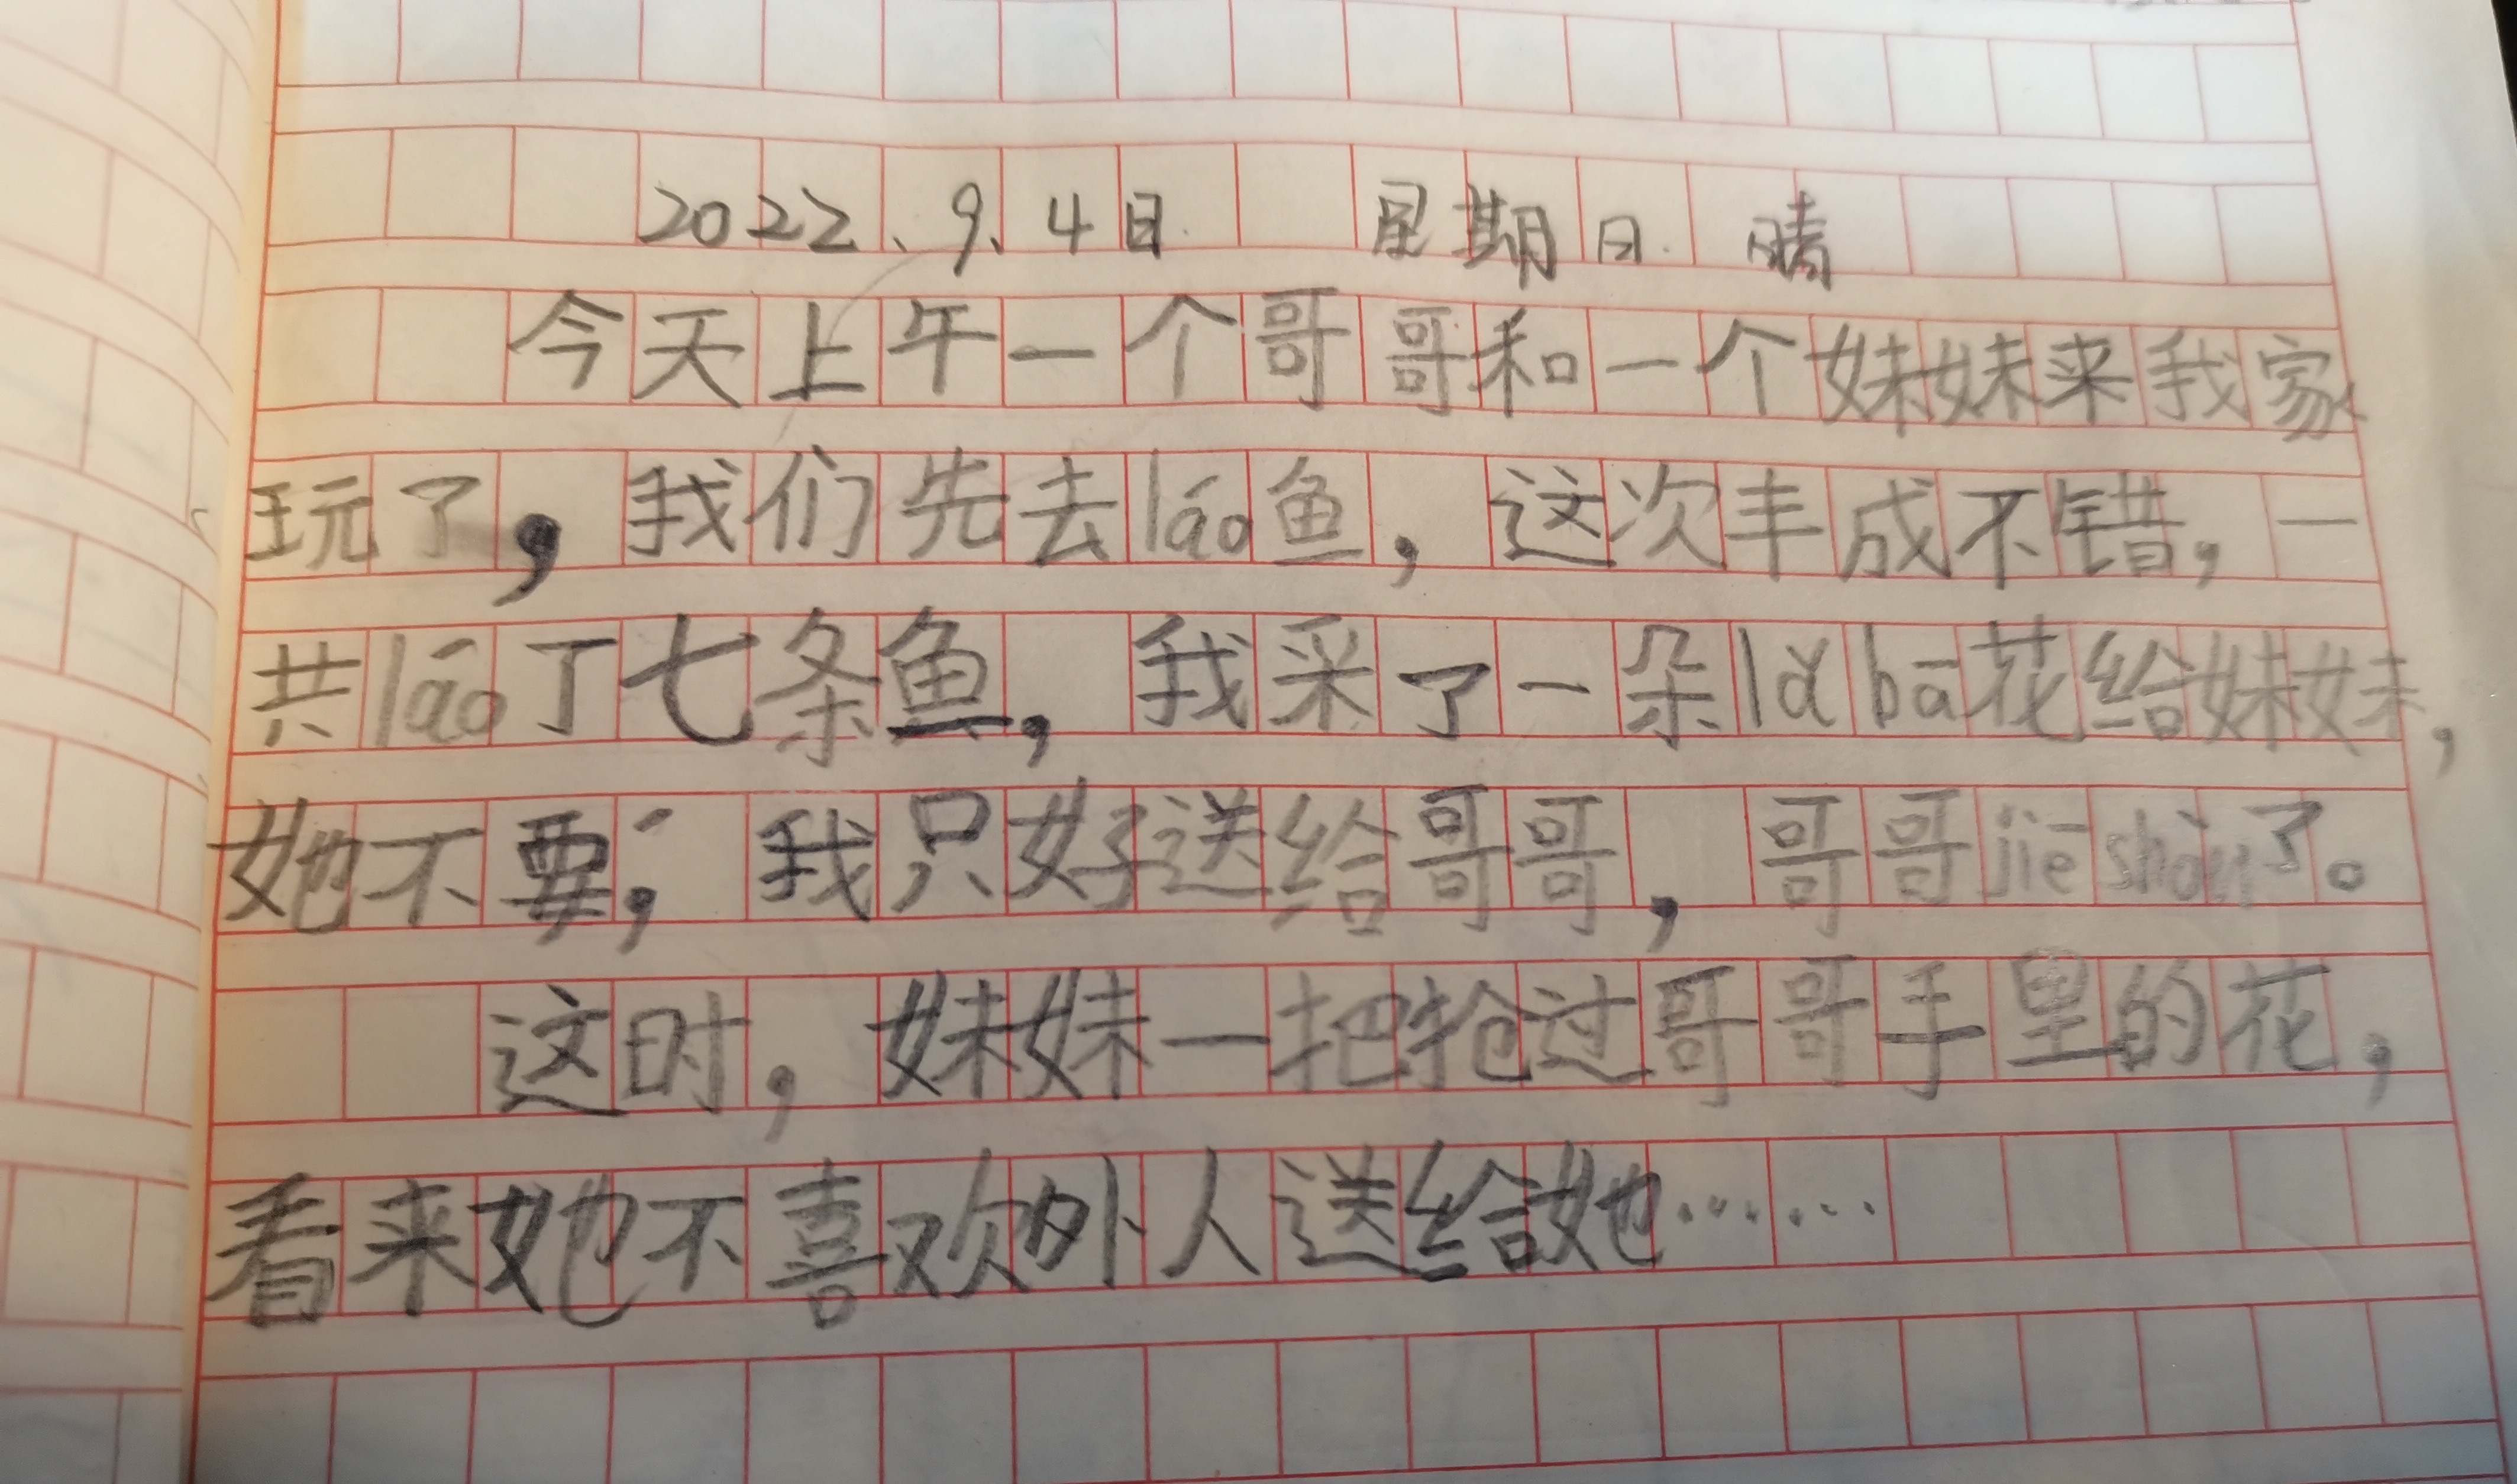 2022、9、4日 星期日 晴
今天上午一个哥哥和一个妹妹来我家
玩了，我们先去láo鱼，这次丰成不错，一
共láo了七条鱼，我采了一朵lǎbā花给妹妹，
她不要，我只好送给哥哥，哥哥jiēshòu了。
这时，妹妹一把抢过哥哥手里的花，
看来她不喜欢外人送给她……